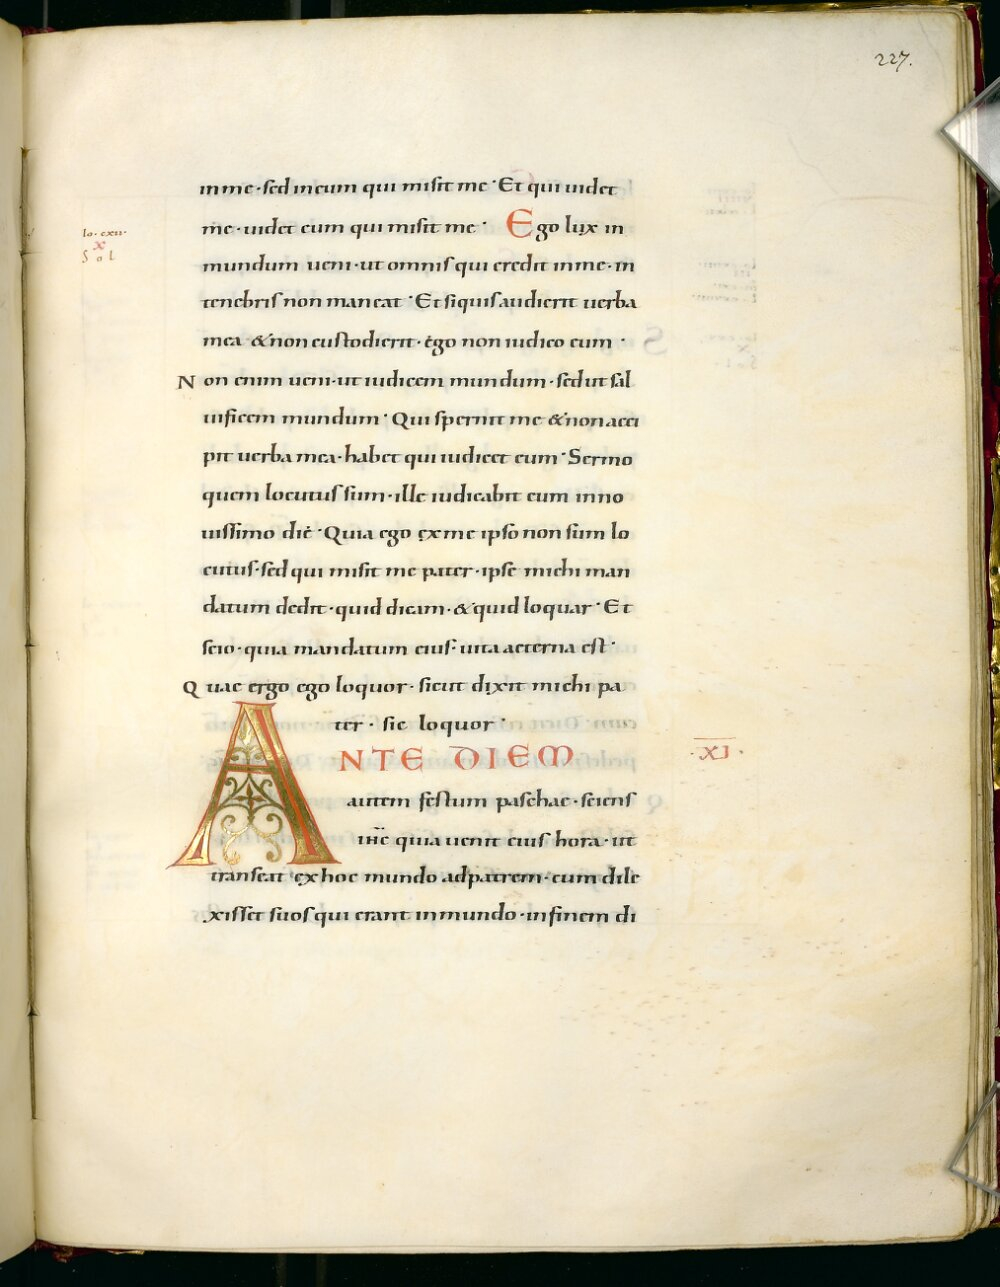 227.
in me · sed in eum qui misit me · Et qui uidet
me · uidet eum qui misit me · Ego lux in
Io · cxii ·
X
Sol
mundum ueni · ut omnis qui credit in me · in
tenebris non maneat · Et siquis audierit uerba
mea & non custodierit · ego non iudico eum ·
Non enim ueni · ut iudicem mundum · sed ut sal
uificem mundum · Qui spernit me & non acci
pit uerba mea · habet qui iudicet eum · Sermo
quem locutus sum · ille iudicabit eum in no
uissimo die · Quia ego ex me ipso non sum lo
cutus · sed qui misit me pater · ipse michi man
datum dedit · quid dicam · & quid loquar · Et
scio · quia mandatum eius · uita aeterna est ·
Quae ergo ego loquor · sicut dixit michi pa
ter · sic loquor ·
ANTE DIEM
· XI ·
autem festum paschae · sciens
ihc quia uenit eius hora · ut
transeat ex hoc mundo ad patrem · cum dile
xisset suos qui erant in mundo · in finem di